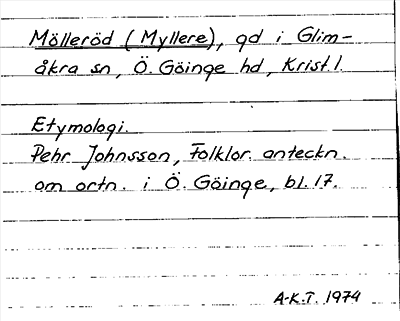 Mölleröd (Myllere), gd i Glim-
åkra sn, Ö. Göinge hd, Krist l.
Etymologi.
Pehr Johnsson, Folklor. anteckn.
om ortn. i Ö. Göinge, bl. 17.
A-K.T. 1974